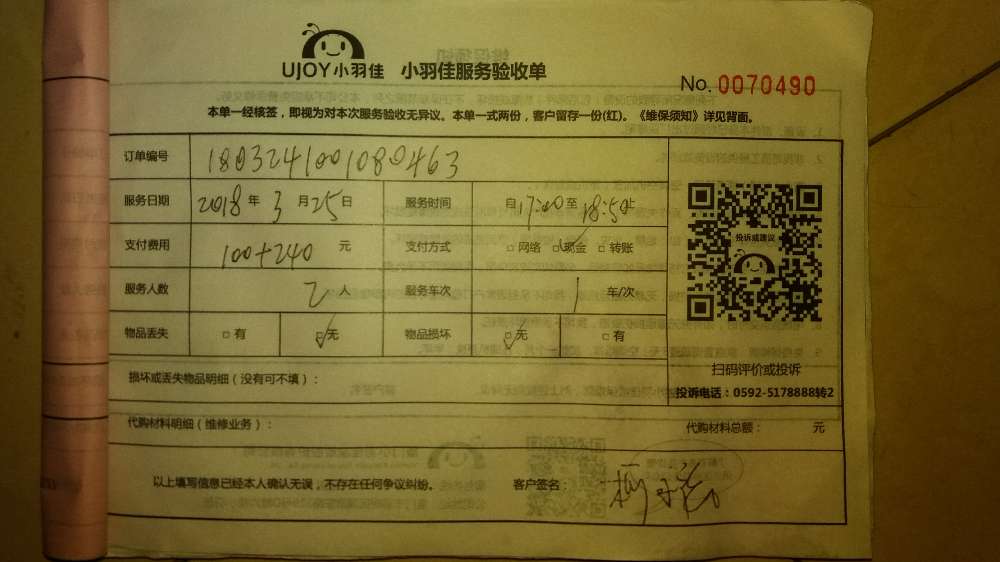 UJOY小羽佳 小羽佳服务验收单
No. 0070490
本单一经核签，即视为对本次服务验收无异议。本单一式两份，客户留存一份(红)。《维保须知》详见背面。
订单编号 1803241001080463
服务日期 2018年3月25日 服务时间 自17:00至18:50止
支付费用 100+240 元 支付方式 □网络 □现金 □转账
投诉或建议
服务人数 2人 服务车次 1 车/次
物品丢失 □有 □无 物品损坏 □无 □有
扫码评价或投诉
损坏或丢失物品明细（没有可不填）：
投诉电话：0592-5178888转2
代购材料明细（维修业务）： 代购材料总额： 元
以上填写信息已经本人确认无误，不存在任何争议纠纷。 客户签名：